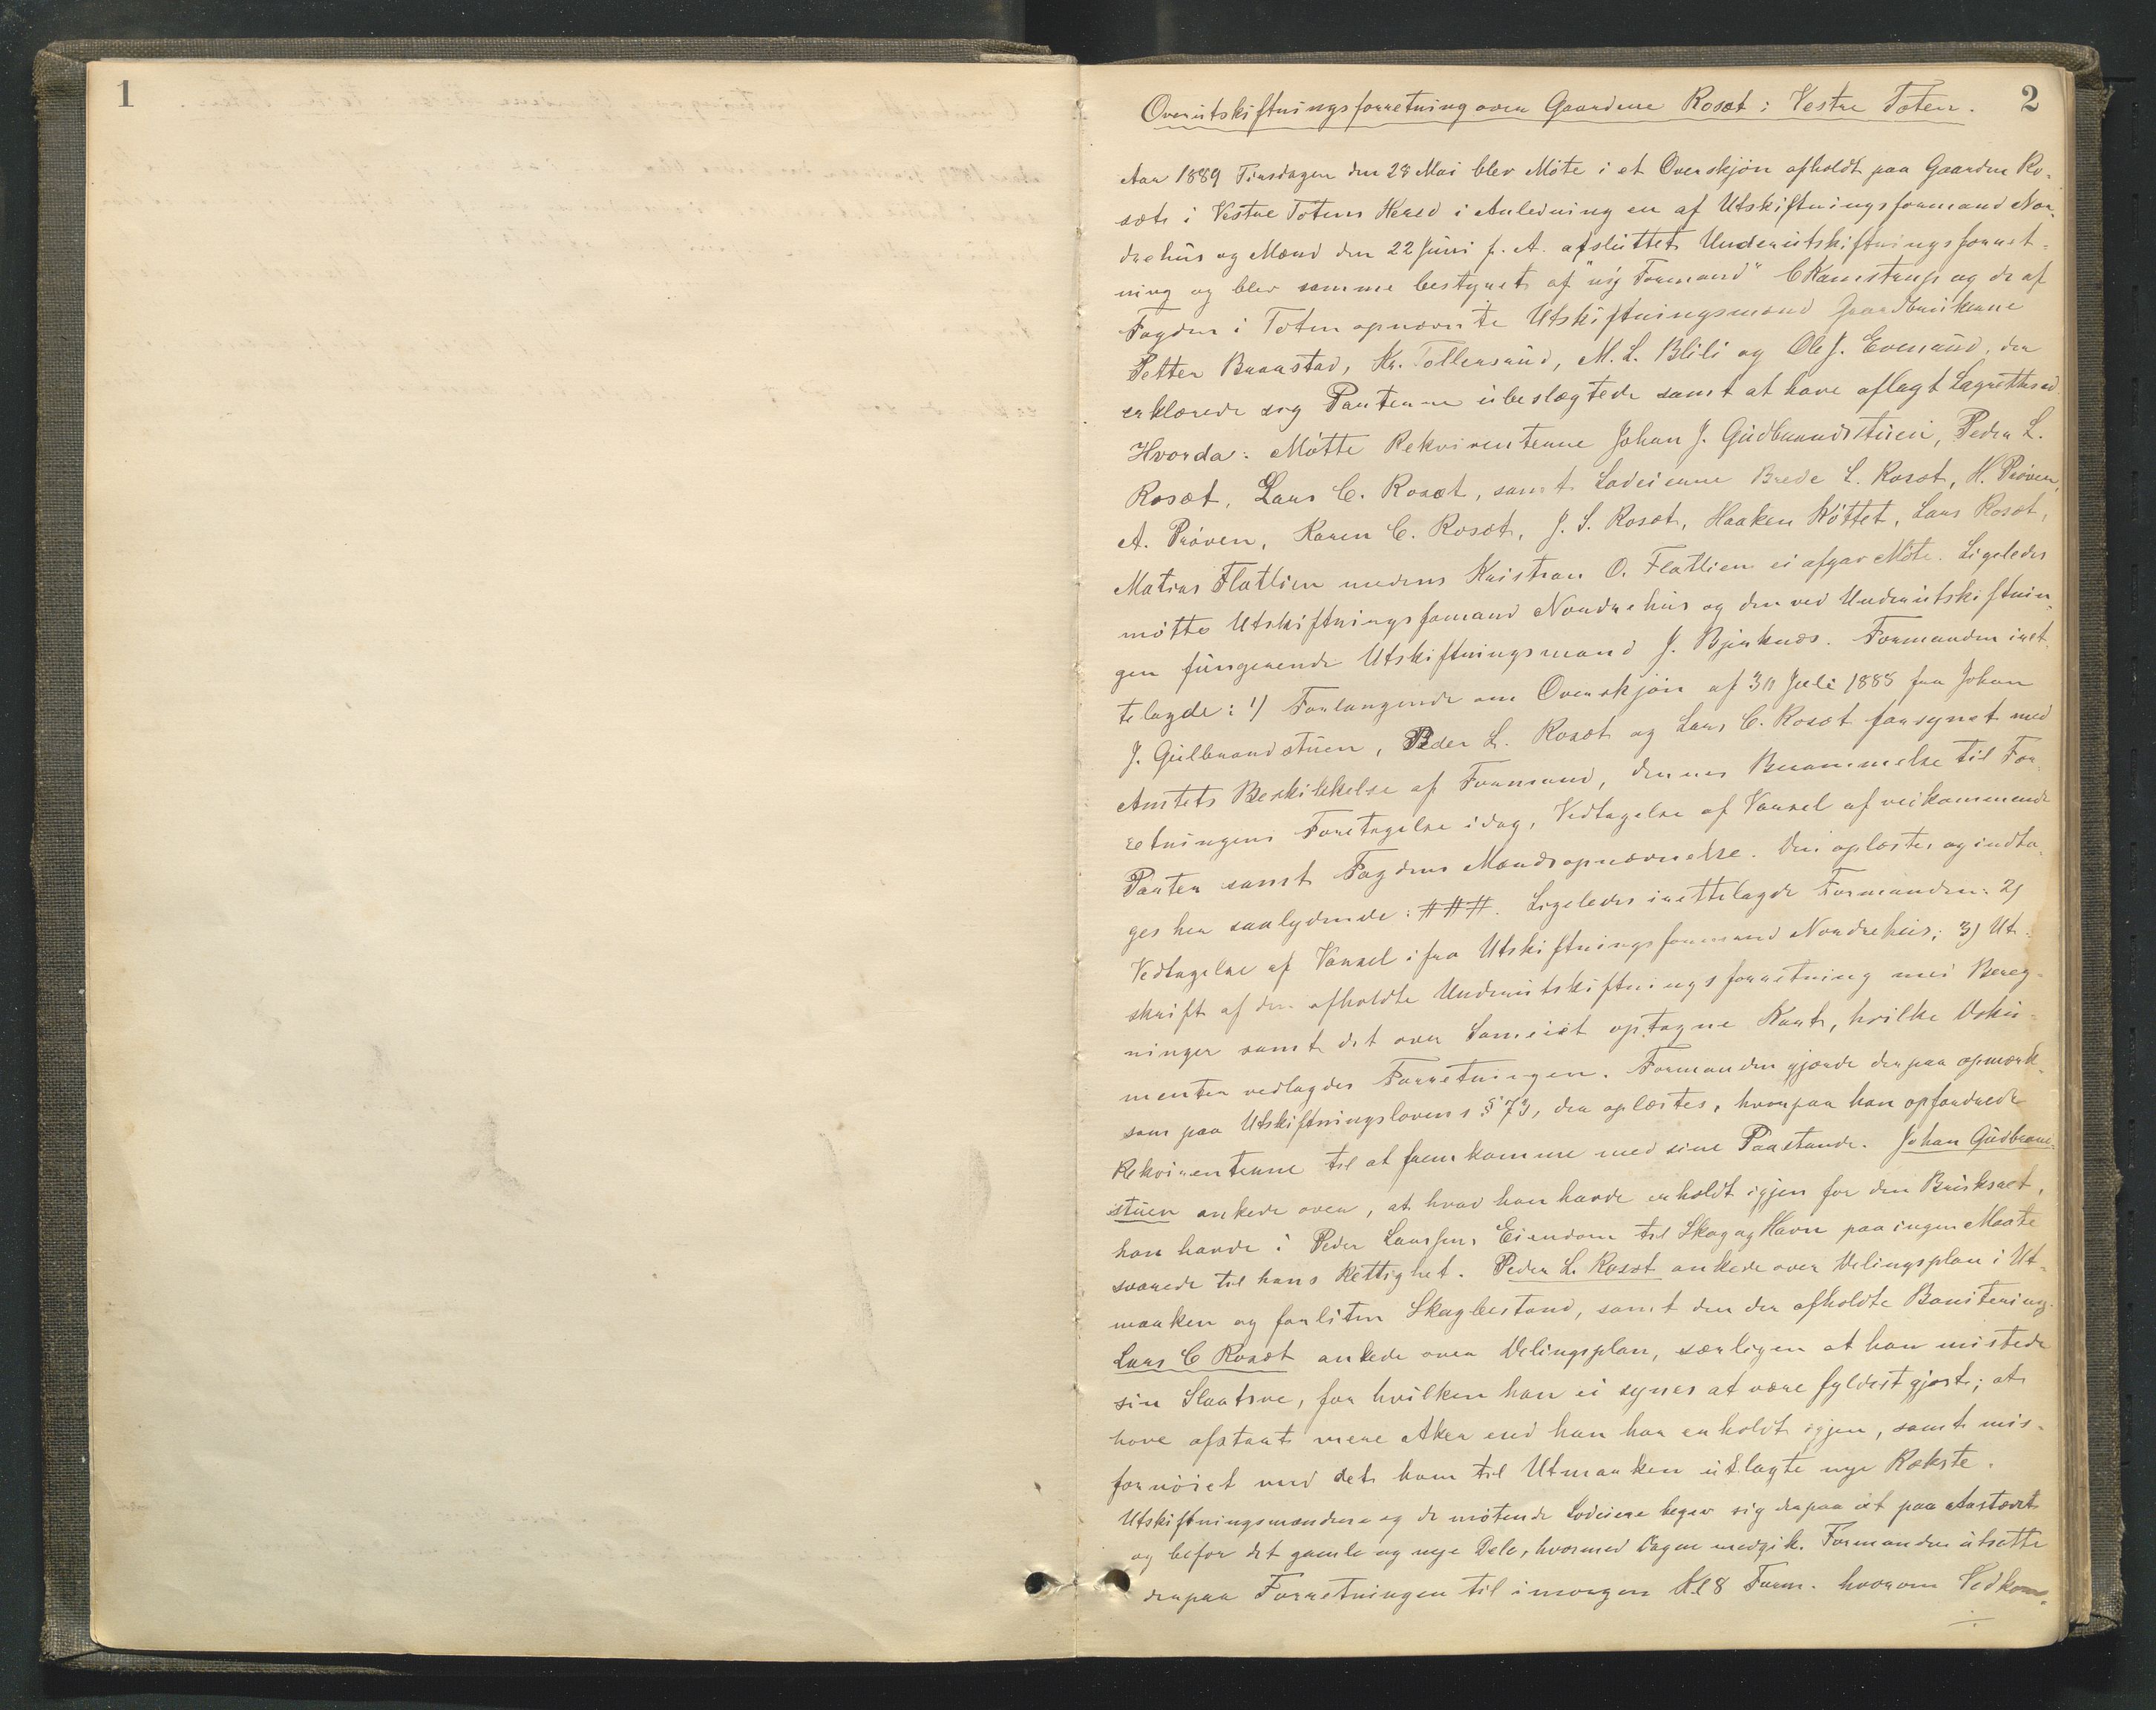 1
2
Overutskiftningsforretning over Gaardene Rosæt i Vestre Toten.
Aar 1889 Tirsdagen den 28 Mai blev Møte i et Overskjøn afholdt paa Gaarden Ro-
sæt i Vestre Totens Hered i Anledning en af Utskiftningsformand Nor-
drehus og Mænd den 22 Juni f. A. afsluttet Underutskiftningsforret-
ning og blev samme bestyret af "ny Formand" C Kamstrup og de af
Fogden i Toten opnævnte Utskiftningsmænd Gaardbrukerne
Petter Braastad, Kr. Tollersrud, M. L. Blili og Ole J. Evenrud, der
erklærede sig Parterne ubeslægtede samt at have aflagt Lagretteed.
Hvorda: Møtte Rekvirenterne Johan J. Gudbrandstuen, Peder L.
Rosæt, Lars C. Rosæt, samt Lodeierne Brede L. Rosæt, H. Prøven,
A. Prøven, Karen C. Rosæt, J. S. Rosæt, Haaken Røttet, Lars Rosæt,
Matias Flatlien medens Kristian O. Flatlien ei afgav Møte. Ligeledes
møtte Utskiftningsfomand Nordrehus og den ved Underutskiftnin-
gen fungerende Utskiftningsmand J. Bjerknæs. Formanden iret-
telagde: 1) Forlangende om Overskjøn af 30 Juli 1888 fra Johan
J. Gulbrandstuen, Peder L. Rosæt og Lars C. Rosæt forsynet med
Amtets Beskikkelse af Formand, dennes Berammelse til For-
retningens Foretagelse idag, Vedtagelse af Varsel af veikommende
Parter samt Fogdens Mændsopnævnelse. Die oplæstes og indta-
ges her saalydende: ###. Ligeledes irettelagde Formanden: 2)
Vedtagelse af Varsel ifra Utskiftningsformand Nordrehus; 3) Ut-
skrift af den afholdte Underutskiftningsforretning med Bereg-
ninger samt det over Sameiet optagne Kart, hvilke Doku-
menter vedlagdes Forretningen. Formanden gjorde derpaa opmærk-
som paa Utskiftningslovens § 73, der oplæstes, hvorpaa han opfordrede
Rekvirenterne til at fremkomme med sine Paastande. Johan Gudbrand-
stuen ankede over, at hvad han havde erholdt igjen for den Bruksret,
han havde i Peder Larssens Eiendom til Skog og Havn paa ingen Maate
svarede til hans Rettighet. Peder L. Rosæt ankede over Delingsplan i Ut-
marken og forliten Skogbestand, samt den der afholdte Bonitering.
Lars C Rosæt ankede over Delingsplan, særligen at han mistede
sin Slaatsve, for hvilken han ei synes at være fyldestgjort; at
have afstaat mere Aker end han har erholdt igjen, samt mis-
fornøiet med det ham til Utmarken utlagte nye Rækste.
Utskiftningsmændene og de møtende Lodeiere begav sig derpaa ut paa Aastædet
og befor det gamle og nye Dele, hvormed Dagen medgik. Formanden utsatte
derpaa Forretningen til imorgen Kl 8 Form. hvorom Vedkom-